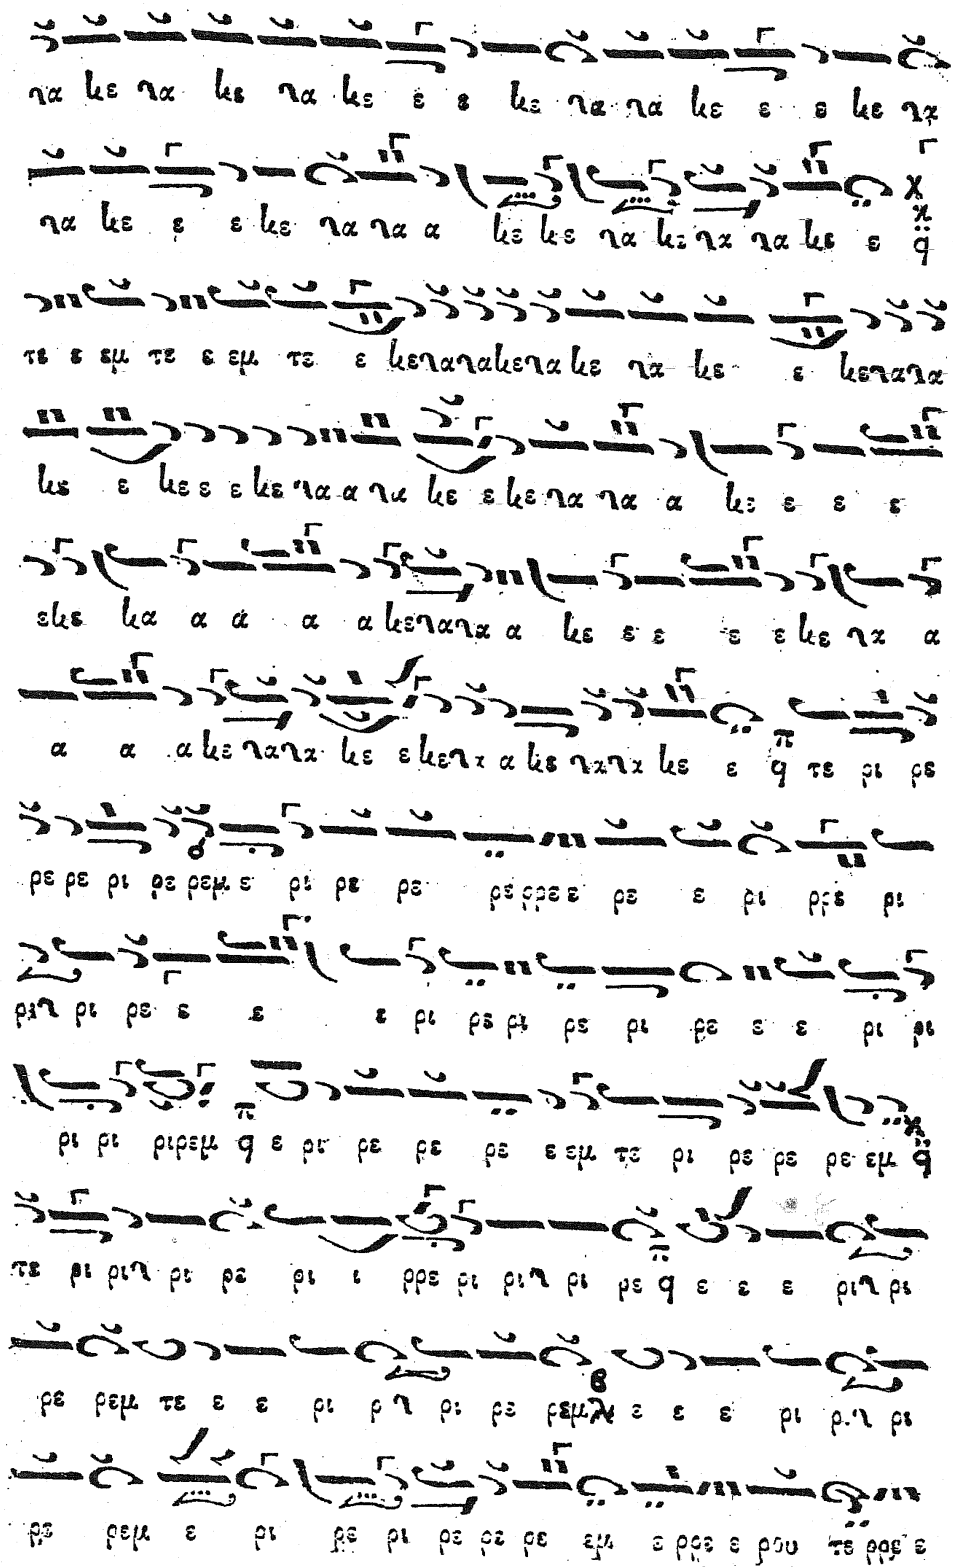 να κε να κε να κε ε ε κε να να κε ε ε κε να
να κε ε ε κε να να α κε κε να κε να να κε ε
τε ε εμ τε ε εμ τε ε κε να να κε να κε να κε ε κε να να
κε ε κε ε ε κε να α να κε ε κε να να α κε ε ε ε
ε κε κα α α α α κε να να α κε ε ε ε ε κε να α
α α α κε να να κε ε κε να α κε να να κε ε τε ρι ρε
ρε ρε ρι ρε ρεμ ε ρι ρε ρε ρε ρρε ε ρε ε ρι ρρε ρι
ρι ρι ρε ε ε ε ρι ρε ρι ρε ρι ρε ε ε ρι ρι
ρι ρι ριρεμ ε ρι ρε ρε ρε ε εμ τε ρι ρε ρε ρε εμ
τε ρι ριν ρι ρε ρι ι ρρε ρι ριν ρι ρε ε ε ε ριν ρι
ρε ρεμ τε ε ε ρι ρ ν ρι ρε ρεμ ε ε ε ρι ρι
ρε ρεμ ε ρι ρε ρι ρε ρε ρε εμ ε ρρε ε ρου τε ρρε ε